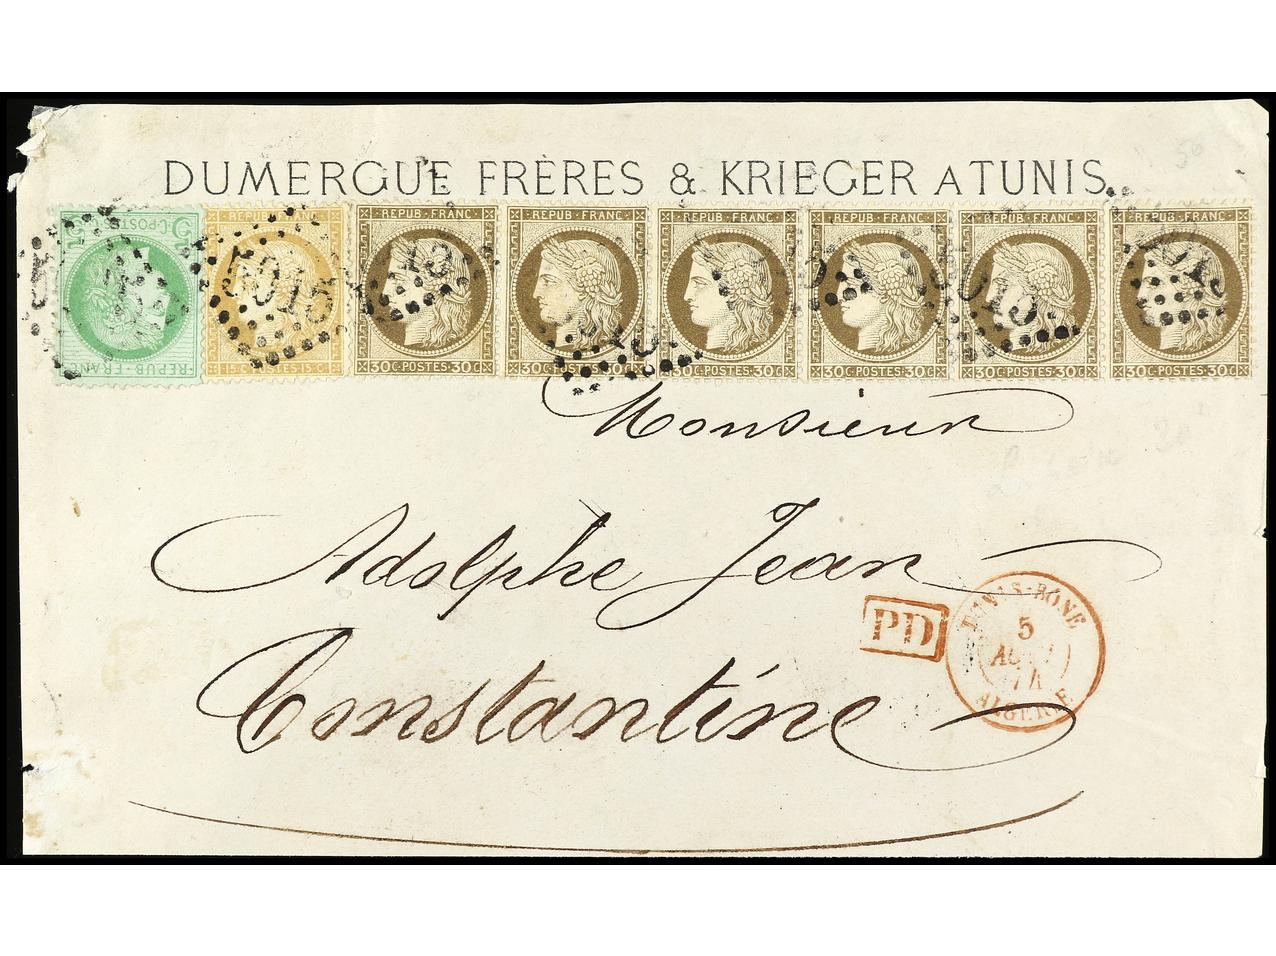 DUMERGUE FRÈRES & KRIEGER A TUNIS.
5 C. POSTES 5
REPUB·FRANC
15 C. POSTES 15 C.
5015
REPUB·FRANC REPUB·FRANC REPUB·FRANC REPUB·FRANC REPUB·FRANC REPUB·FRANC
30 C·POSTES·30 C 30 C·POSTES·30 C 30 C·POSTES·30 C 30 C·POSTES·30 C 30 C·POSTES·30 C 30 C·POSTES·30 C
Monsieur
Adolphe Jean
PD
TUNIS-BONE
5
74
ALGERIE
Constantine